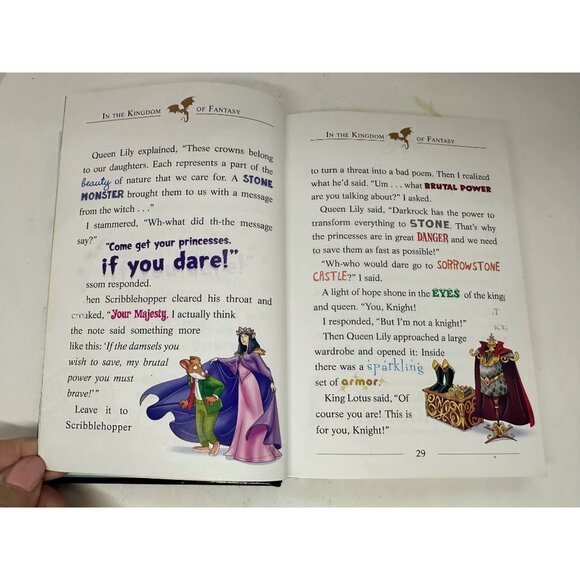 IN THE KINGDOM OF FANTASY
Queen Lily explained, “These crowns belong
to our daughters. Each represents a part of the
beauty of nature that we care for. A STONE
MONSTER brought them to us with a message
from the witch . . .”
I stammered, “Wh-what did th-the message
say?”
“Come get your princesses,
if you dare!”
ssom responded.
hen Scribblehopper cleared his throat and
croaked, “Your Majesty, I actually think
the note said something more
like this: ‘If the damsels you
wish to save, my brutal
power you must
brave!’”
Leave it to
Scribblehopper
IN THE KINGDOM OF FANTASY
to turn a threat into a bad poem. Then I realized
what he’d said. “Um . . . what BRUTAL POWER
are you talking about?” I asked.
Queen Lily said, “Darkrock has the power to
transform everything to STONE. That’s why
the princesses are in great DANGER and we need
to save them as fast as possible!”
“Wh-who would dare go to SORROWSTONE
CASTLE?” I said.
A light of hope shone in the EYES of the king
and queen. “You, Knight!”
I responded, “But I’m not a knight!”
Then Queen Lily approached a large
wardrobe and opened it: Inside
there was a sparkling
set of armor.
King Lotus said, “Of
course you are! This is
for you, Knight!”
29